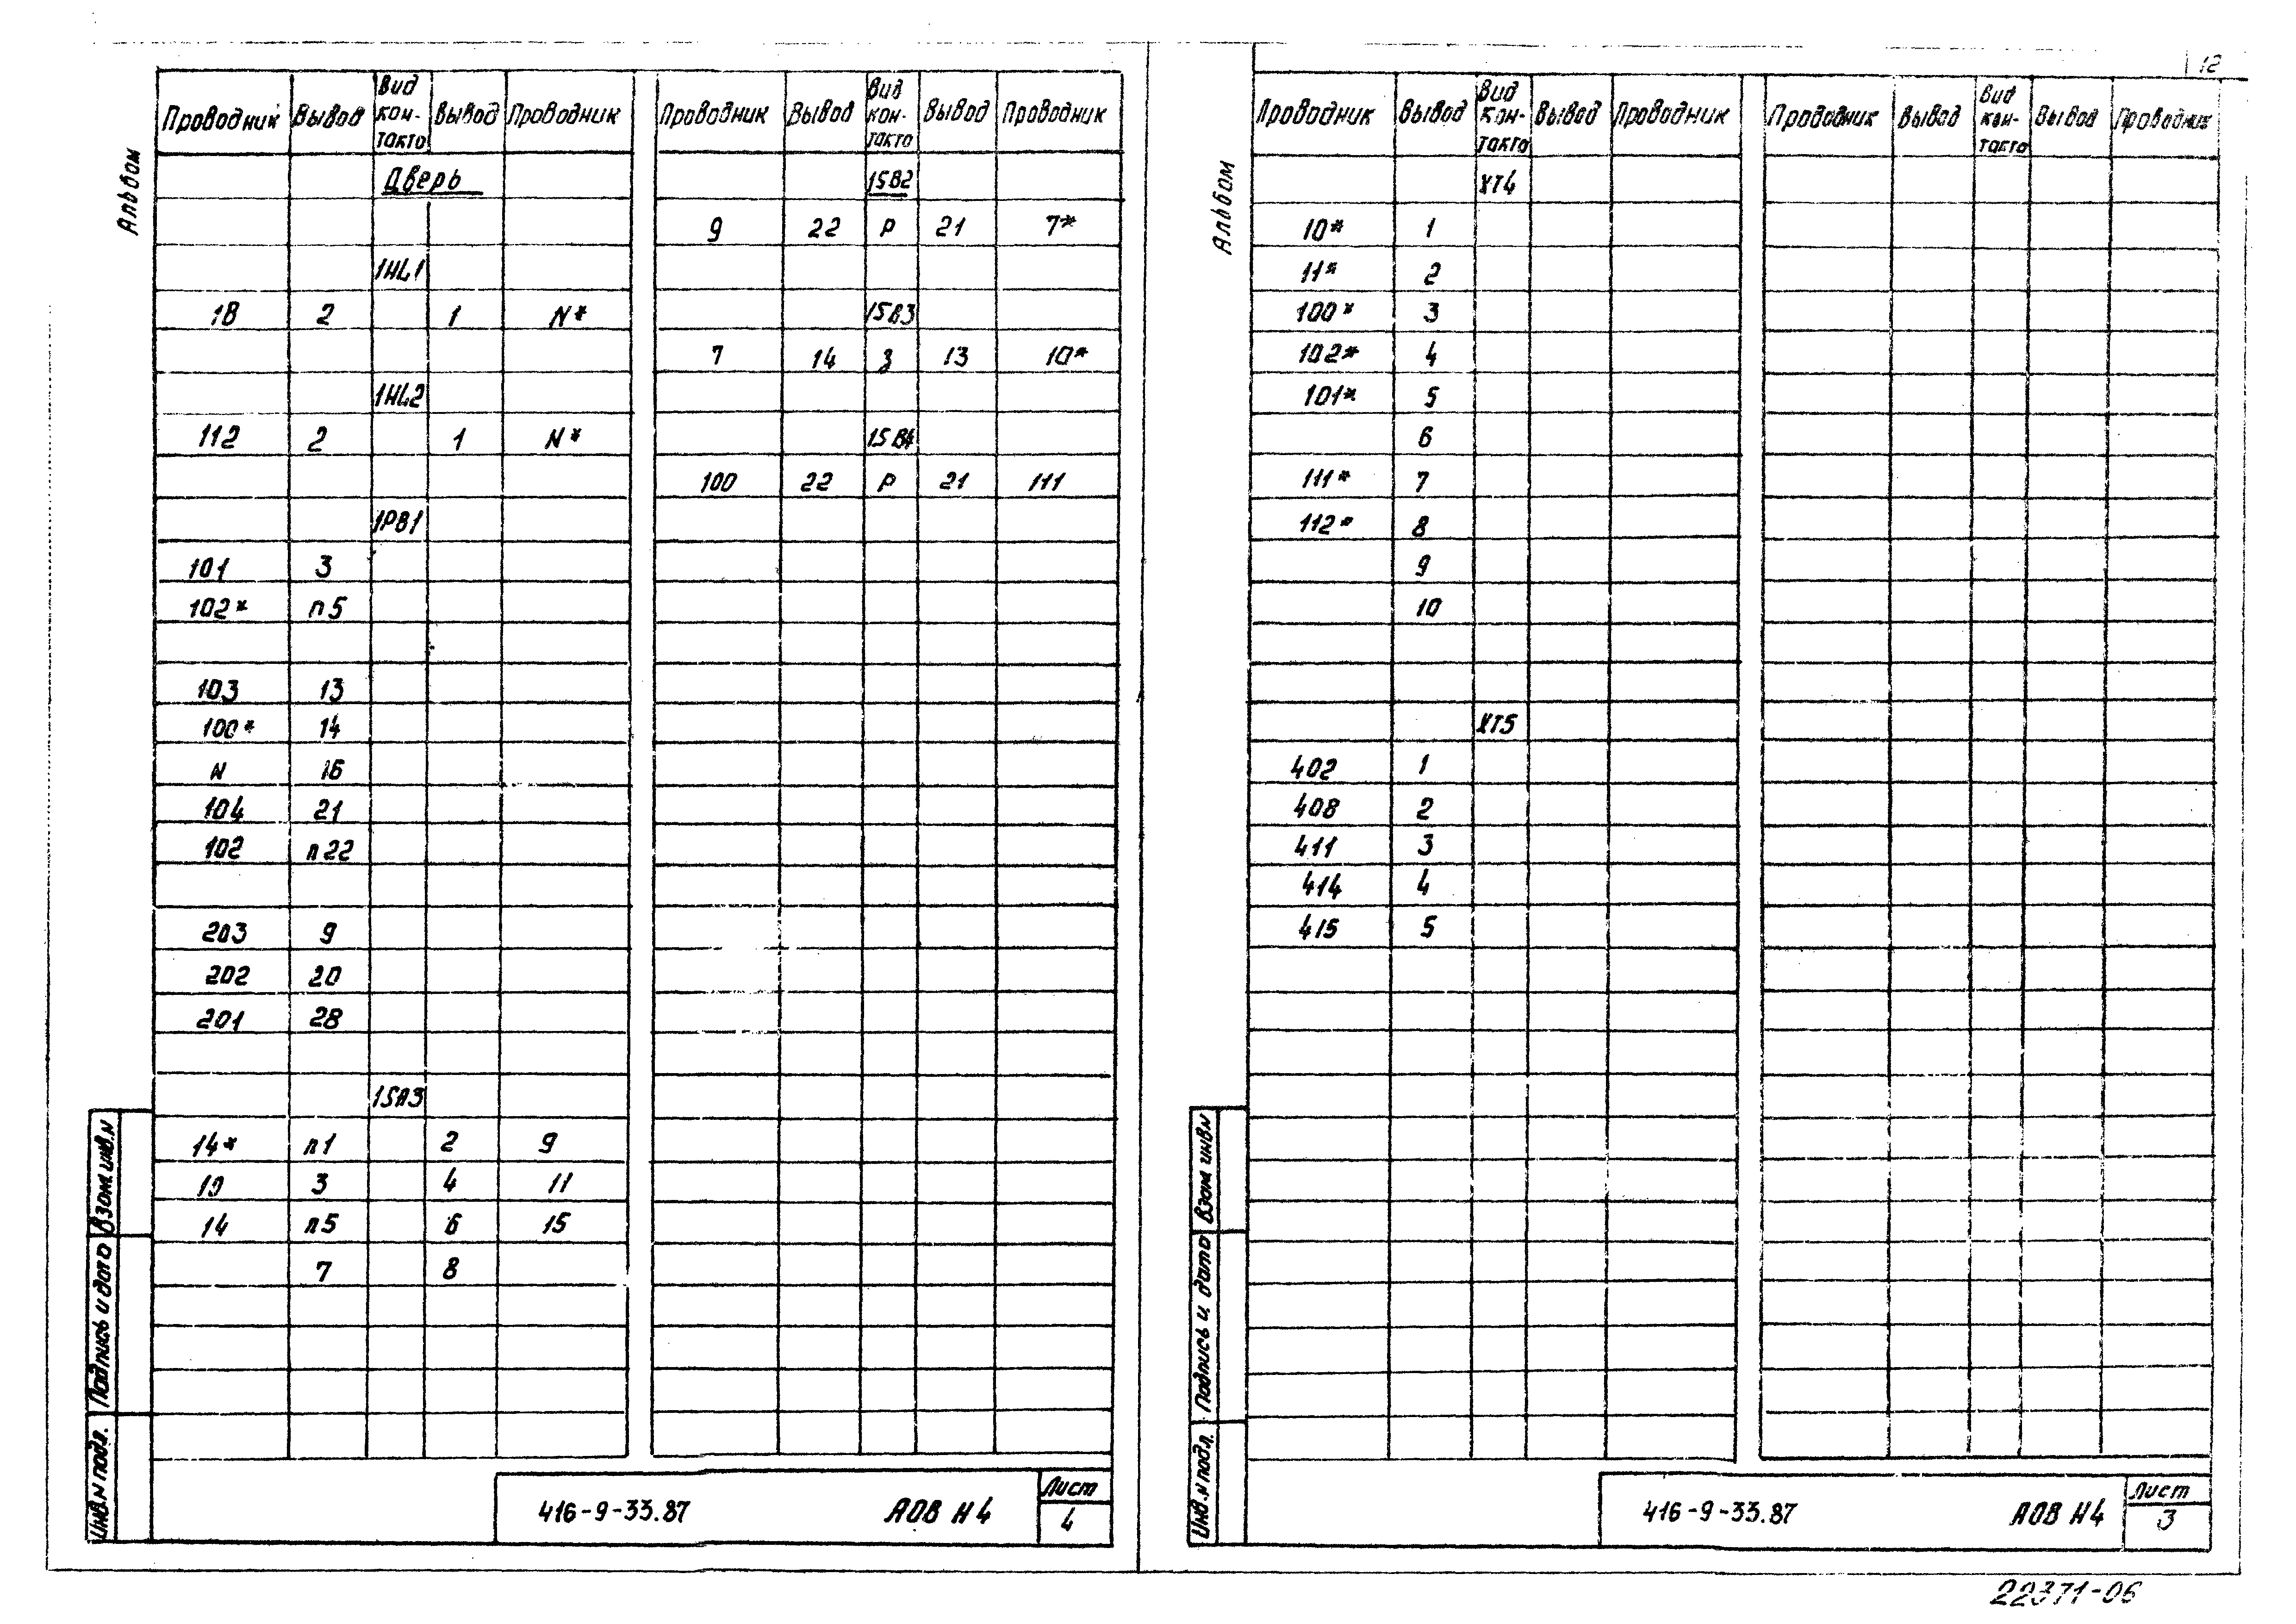 12
Альбом
Проводник Вывод Вид кон-такта Вывод Проводник
Дверь
1HL1
18 2 1 N*
1HL2
112 2 1 N*
1РВ1
101 3
102* п5
103 13
100* 14
N 16
104 21
102 п22
203 9
202 20
201 28
1SA3
14* п1 2 9
10 3 4 11
14 п5 6 15
7 8
Проводник Вывод Вид кон-такта Вывод Проводник
1SB2
9 22 Р 21 7*
1SB3
7 14 З 13 10*
1SB4
100 22 Р 21 111
Взам. инв. N
Подпись и дата
Инв. N подл.
416-9-33.87 АОВ Н4
Лист
4
Альбом
Проводник Вывод Вид кон-такта Вывод Проводник
XT4
10* 1
11* 2
100* 3
102* 4
101* 5
6
111* 7
112* 8
9
10
XT5
402 1
408 2
411 3
414 4
415 5
Проводник Вывод Вид кон-такта Вывод Проводник
Взам. инв. N
Подпись и дата
Инв. N подл.
416-9-33.87 АОВ Н4
Лист
3
22371-06